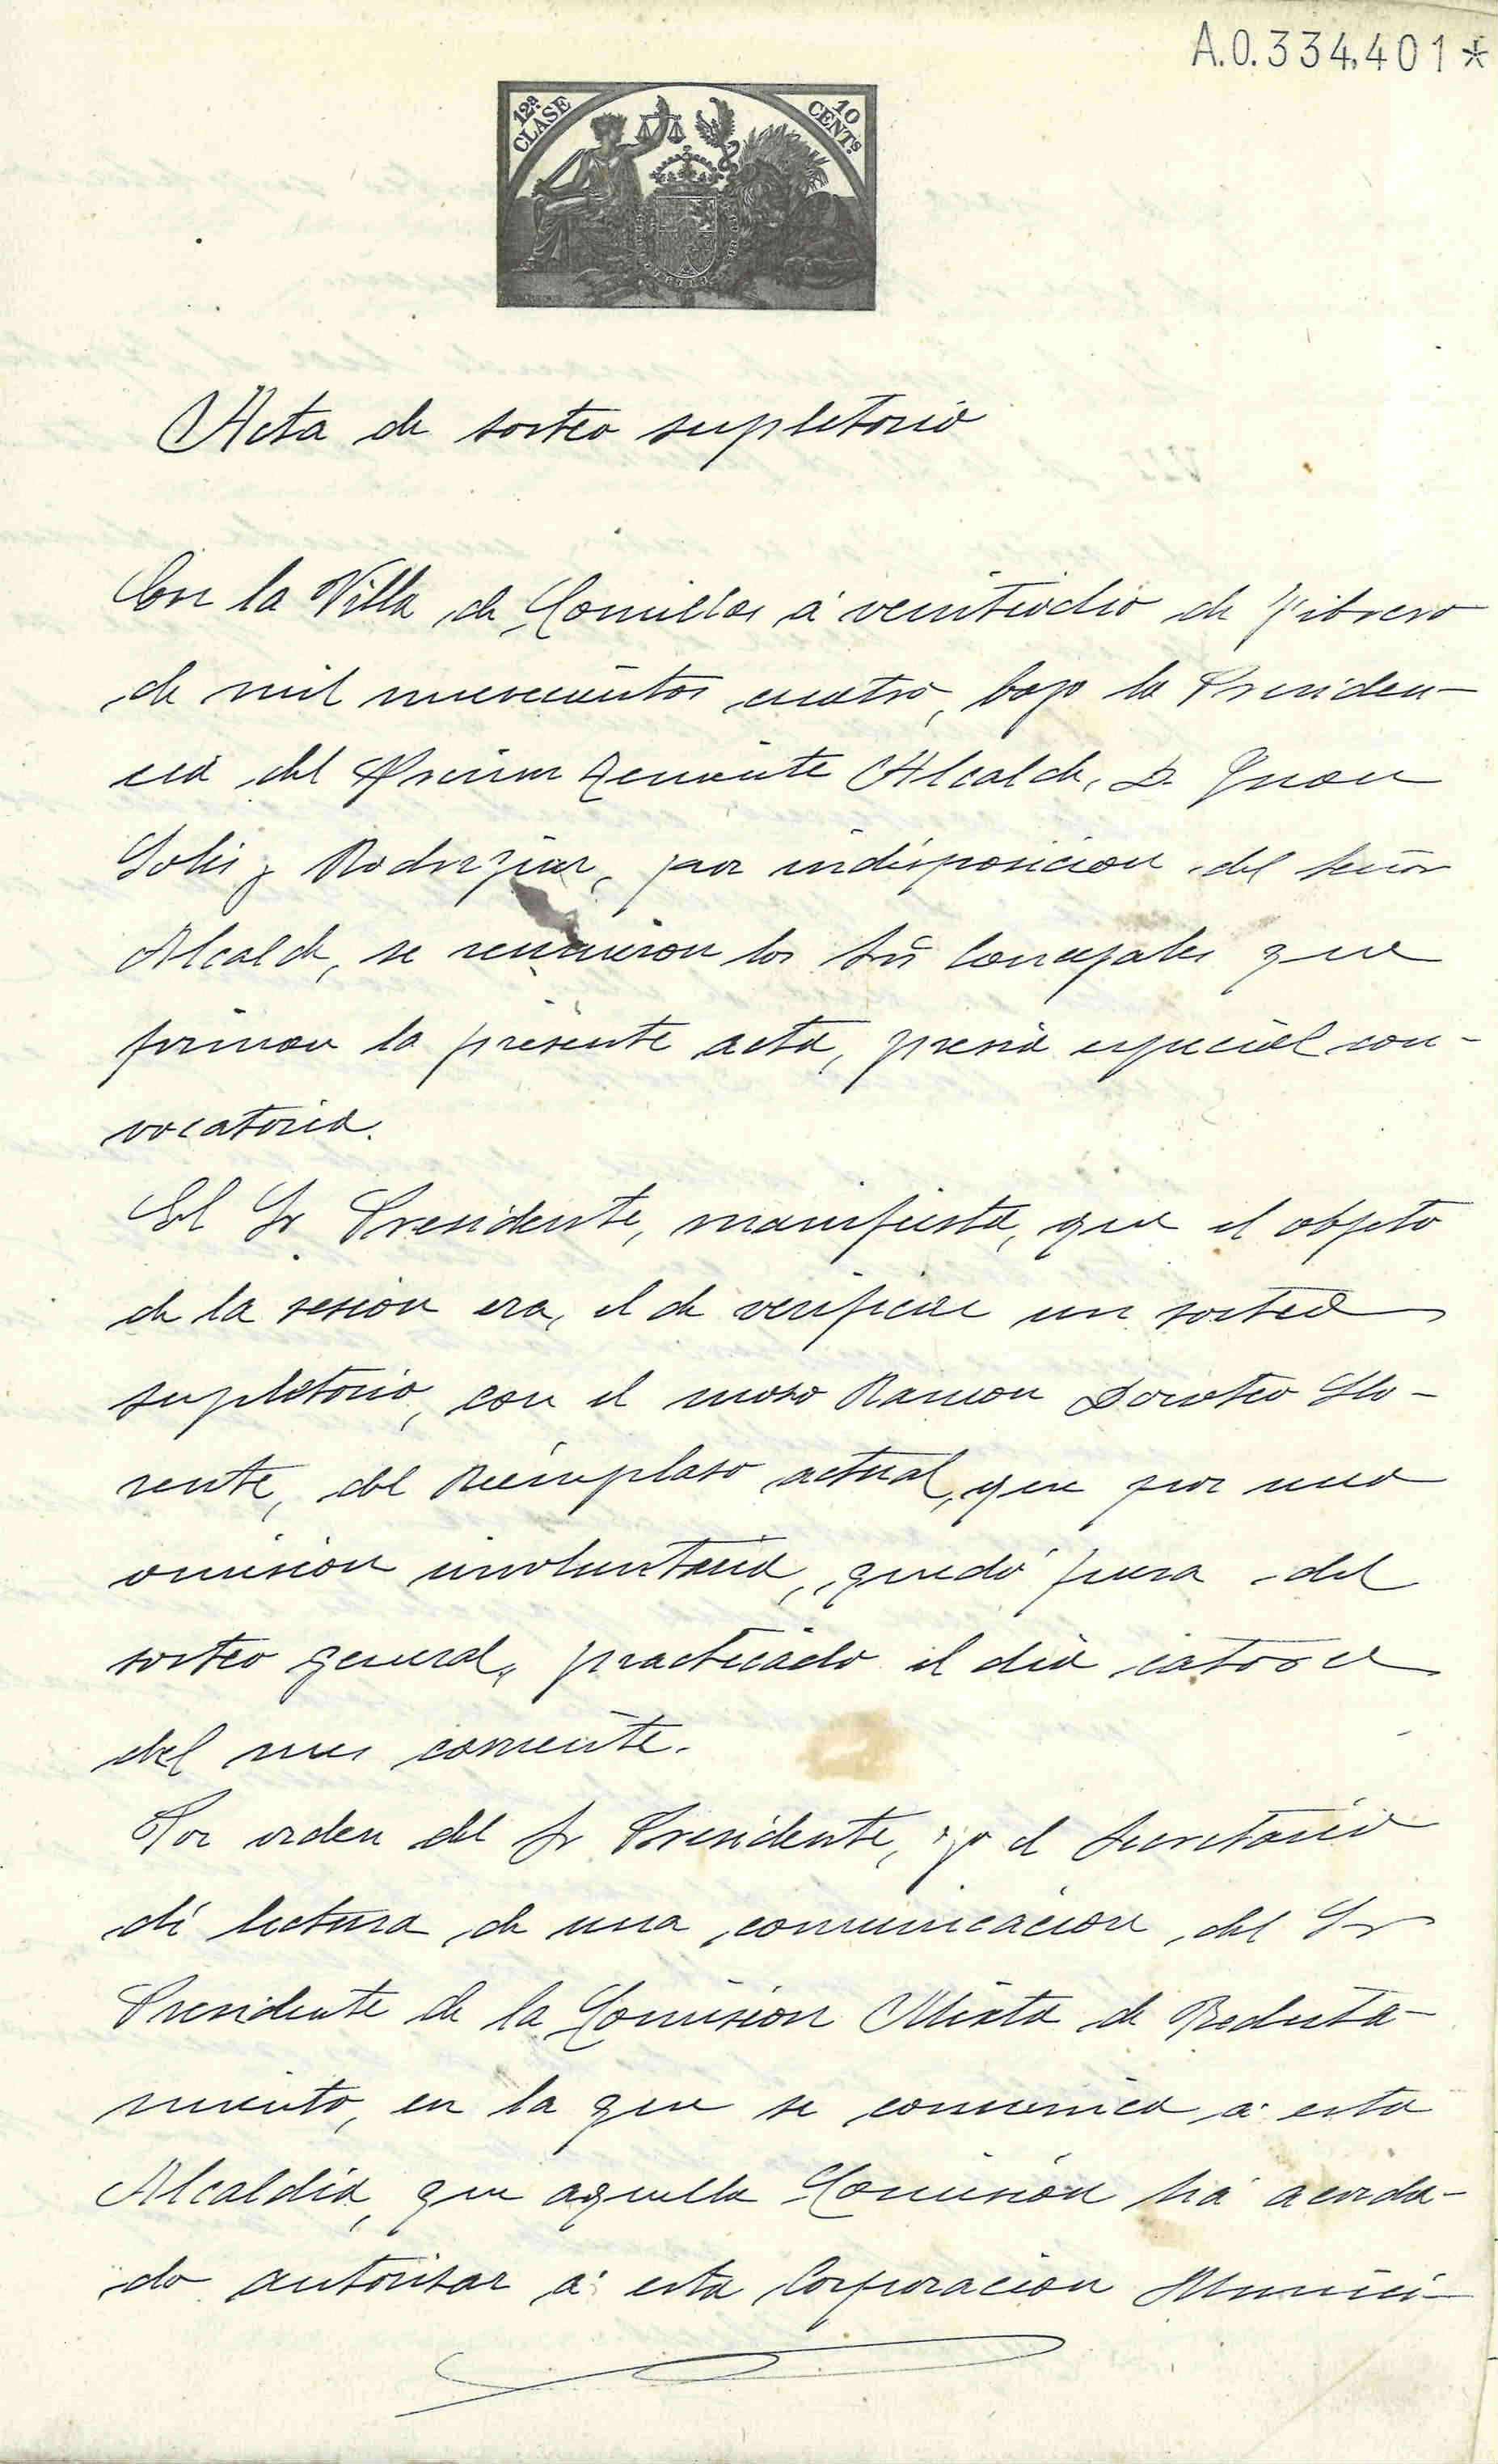 A.0.334,401*
12ª CLASE
10 CENTS
Acta de sorteo supletorio
En la Villa de Comillas á veintiocho de Febrero
de mil novecientos cuatro, bajo la Presiden-
cia del Primer Teniente Alcalde, D. Juan
Solis y Rodriguez, por indisposicion del Señor
Alcalde, se reunieron los Srs Concejales que
firman la presente acta, previa especial con-
vocatoria.
El Sr Presidente, manifiesta, que el objeto
de la sesion era, el de verificar un sorteo
supletorio, con el moso Ramon Doroteo Llo-
rente, del Reemplaso actual, que por una
omision involuntaria, quedó fuera del
sorteo general, practicado el dia catorce
del mes corriente.
Por orden del Sr Presidente, yo el Secretario
dí lectura de una comunicacion del Sr
Presidente de la Comision Mixta de Recluta-
miento, en la que se comunica á esta
Alcaldia, que aquella Comisión há acorda-
do autorisar á esta Corporacion Munici-